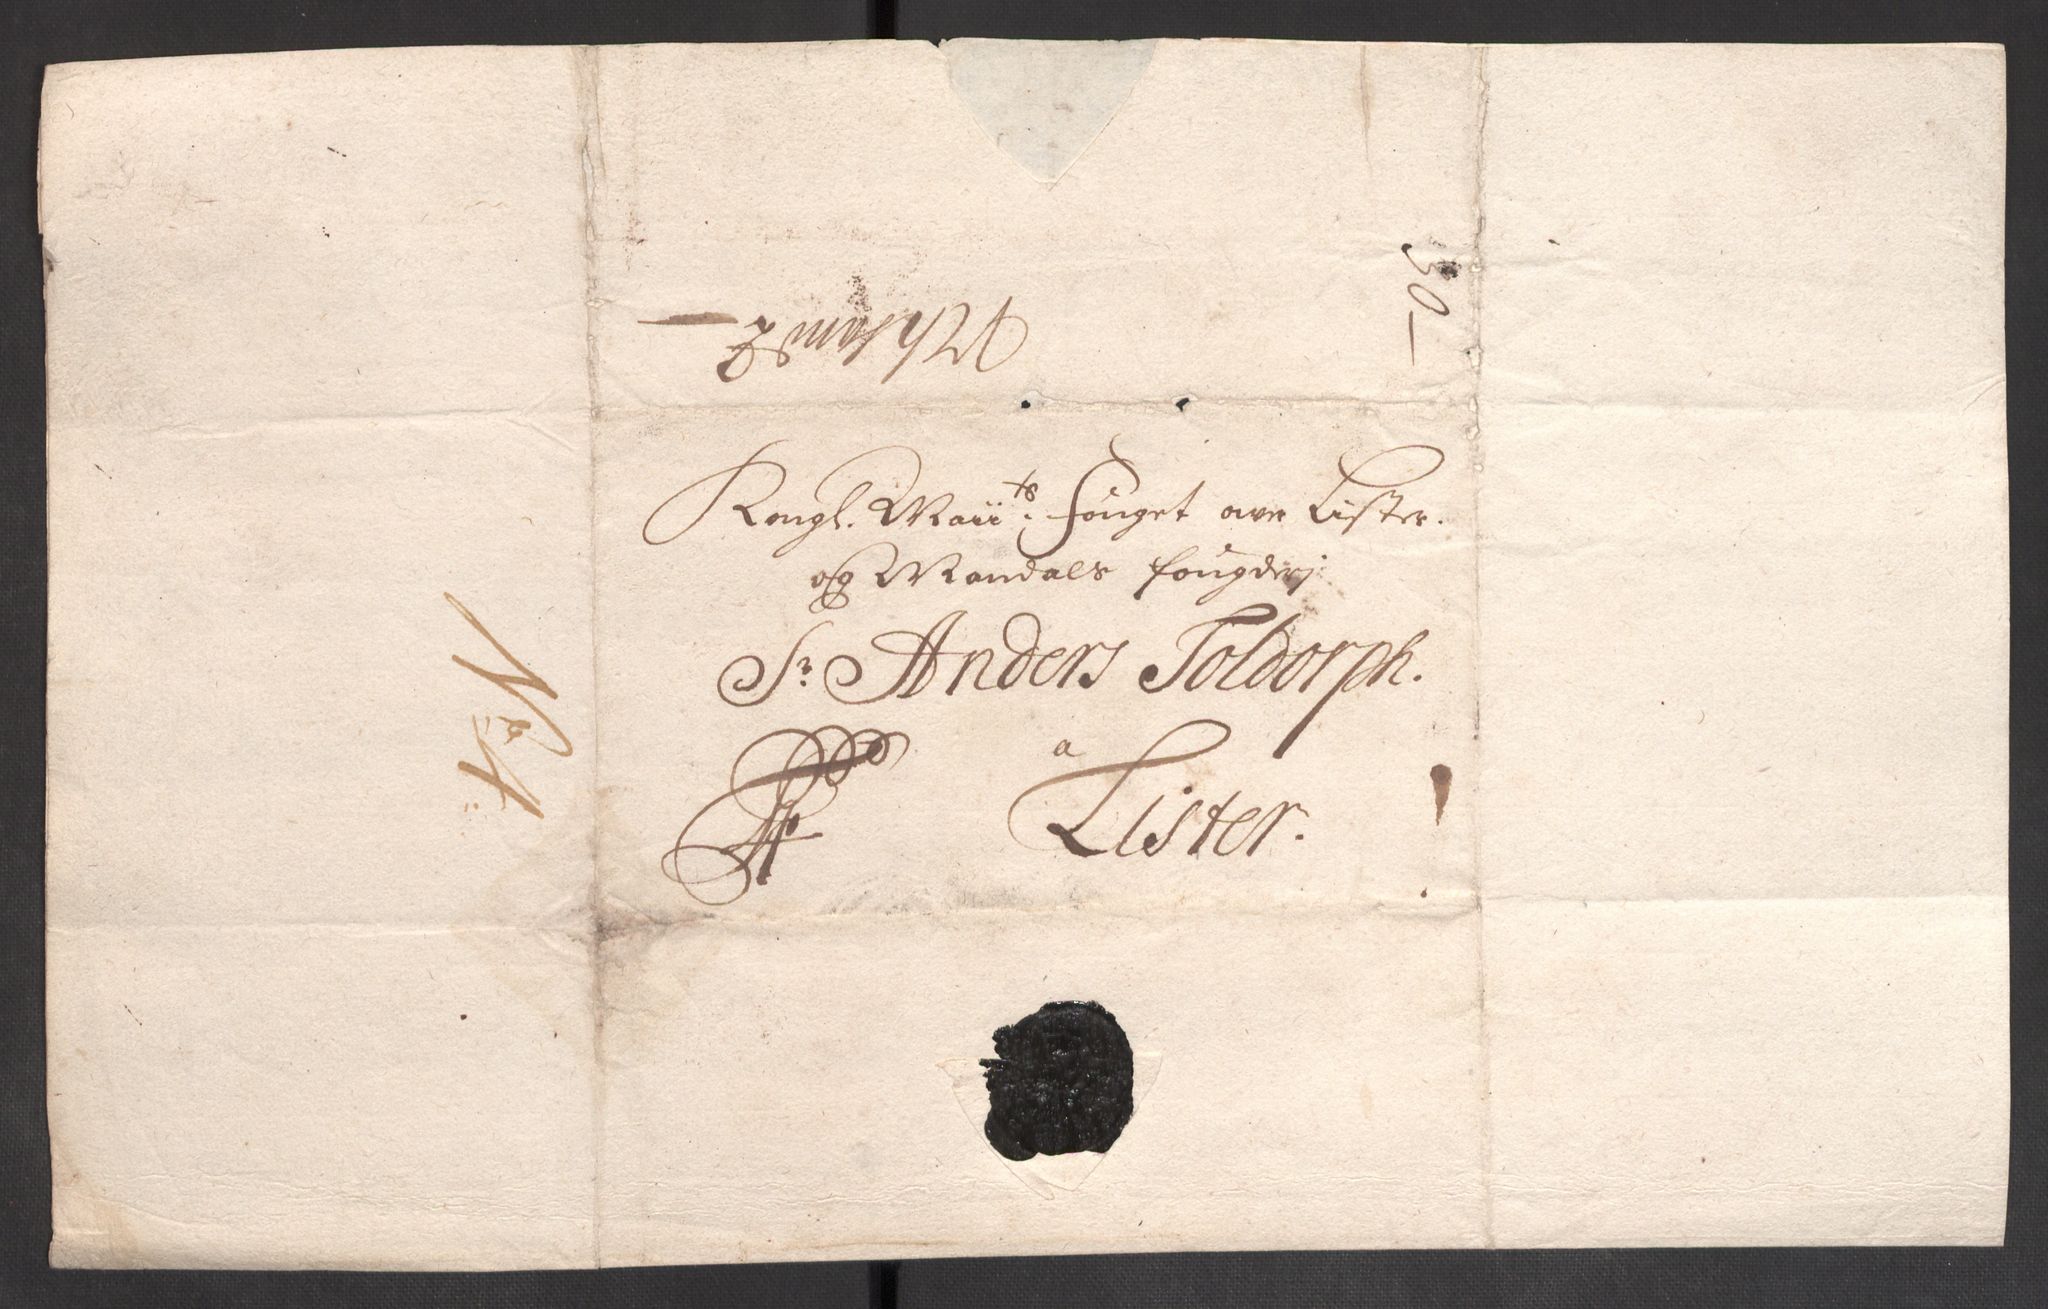 30
Kongl. Maiits. fouget over Lister.
og Mandals fougderj
Sr. Anders Toldorph.
a
Lister.
N